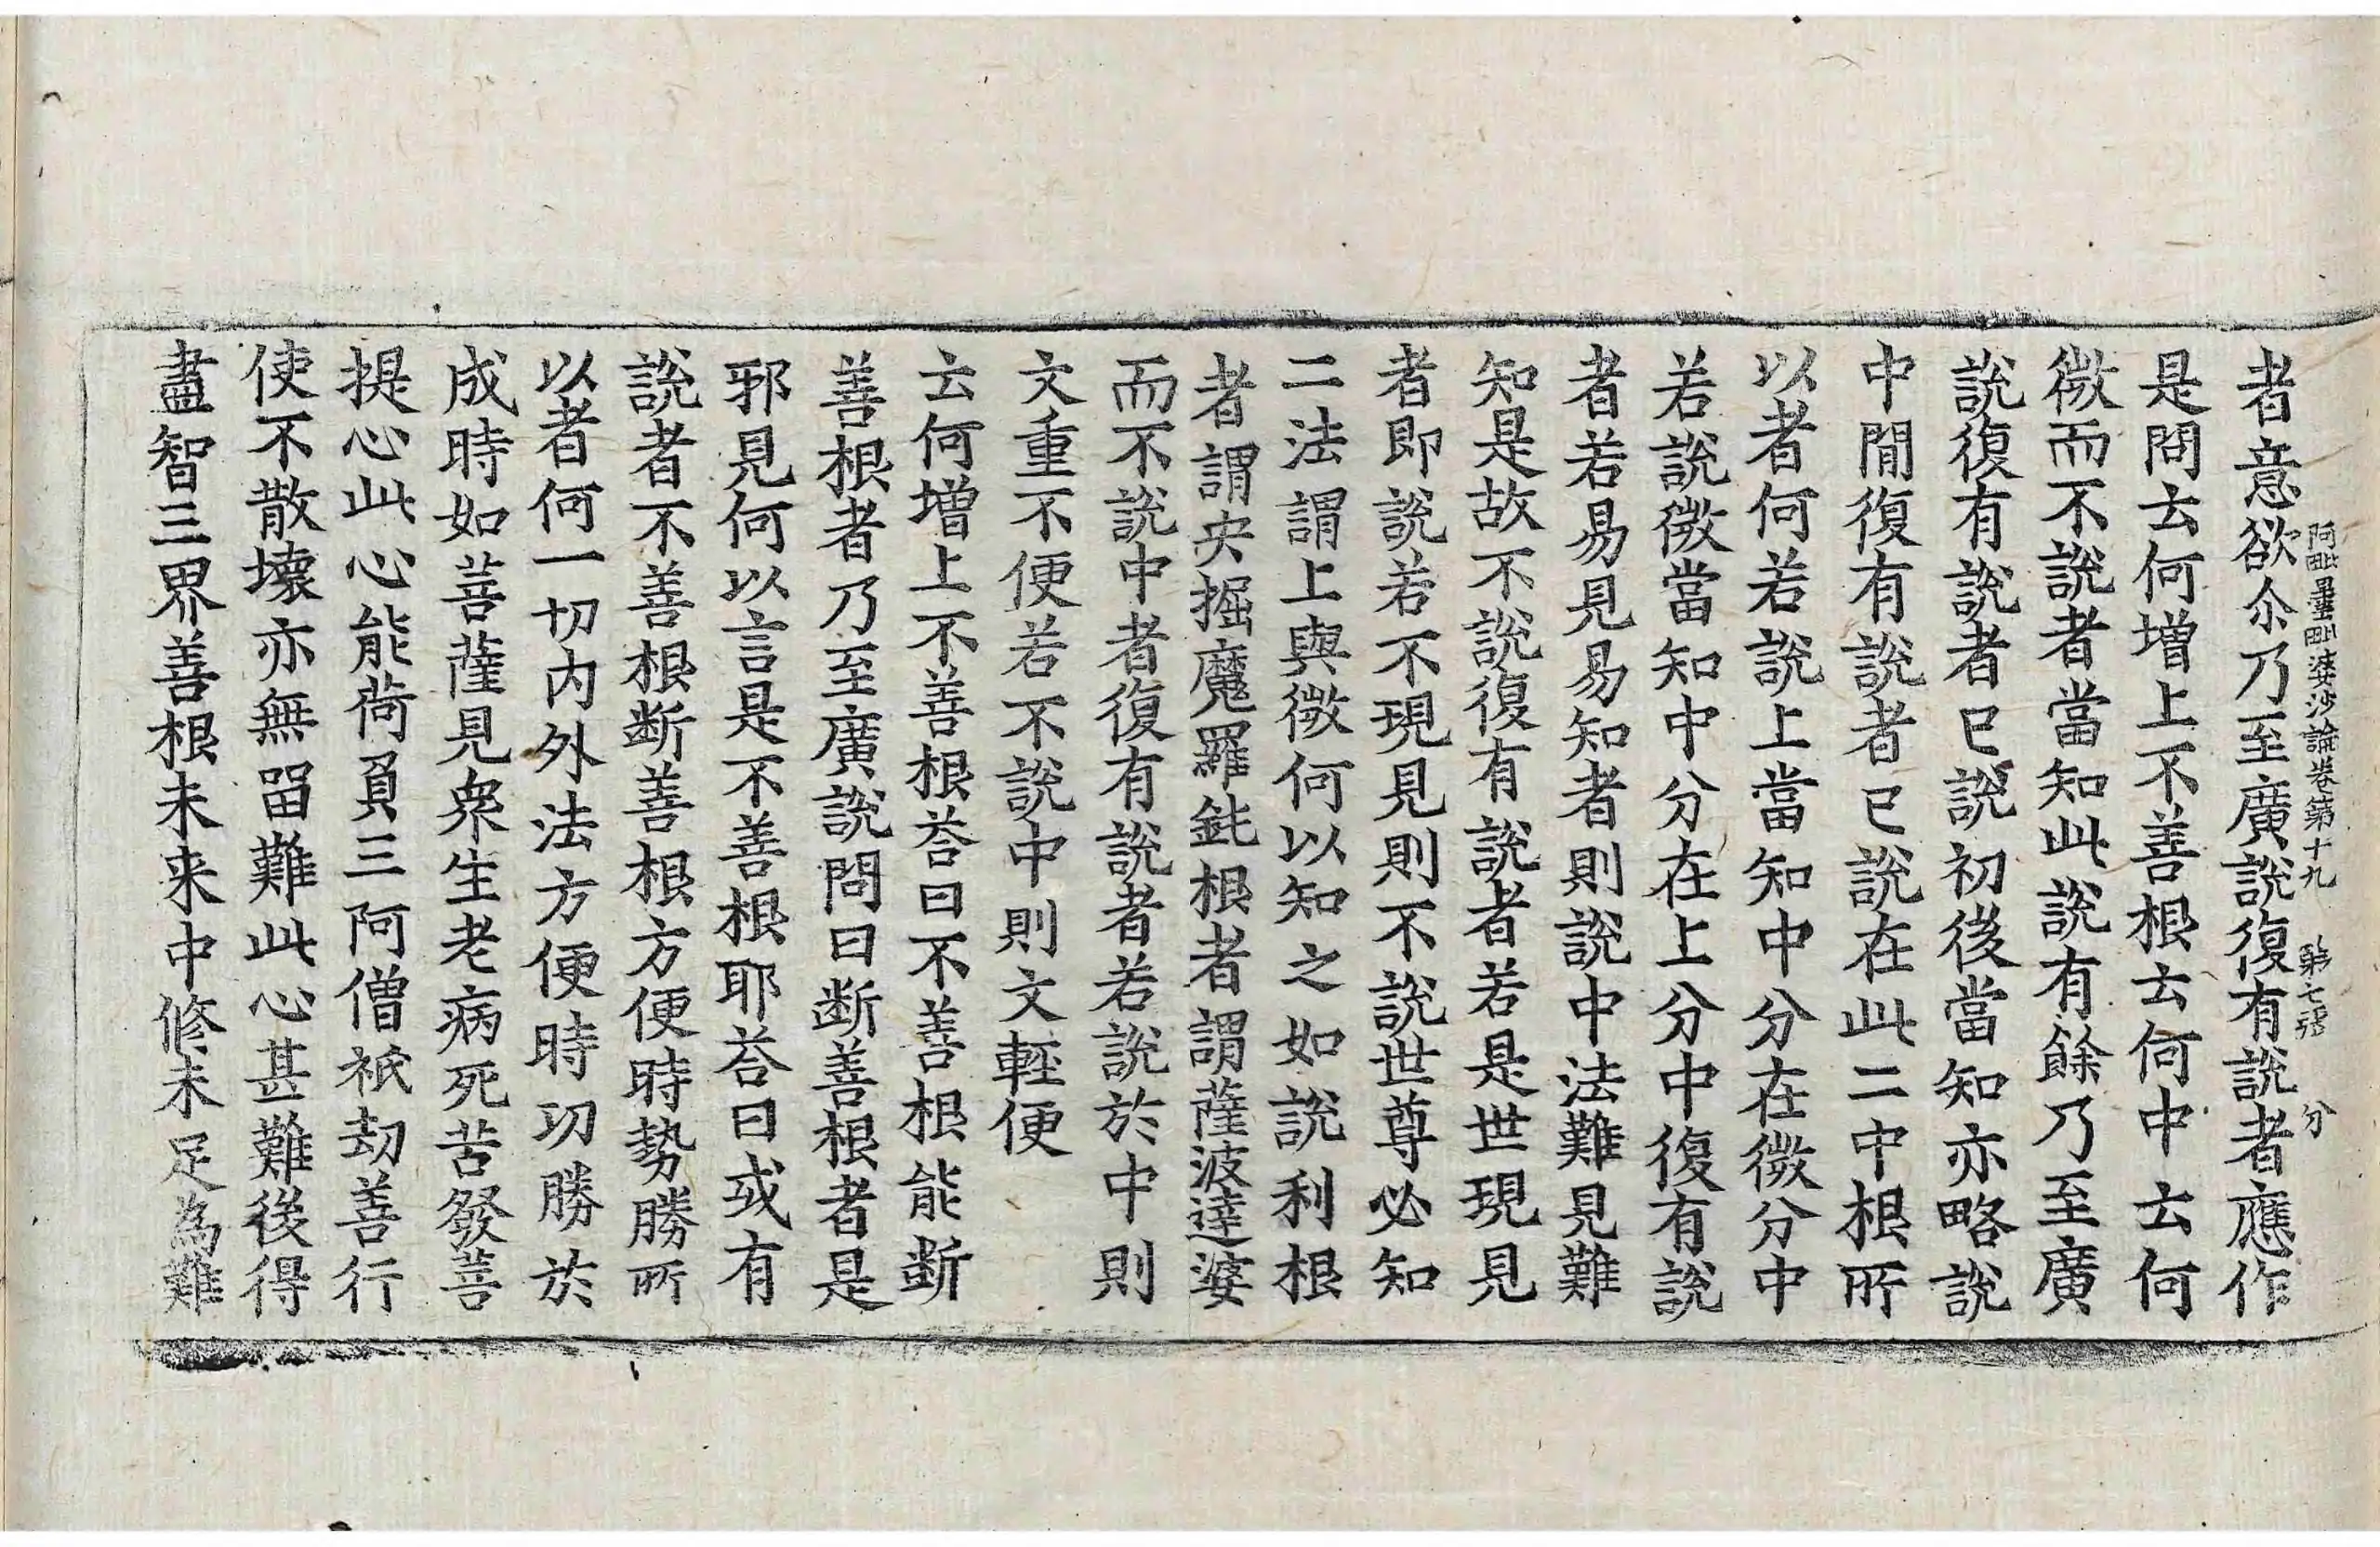 阿毗曇毗婆沙論卷第十九　第七張　分
者意欲尒乃至廣說復有說者應作
是問云何增上不善根云何中云何
微而不說者當知此說有餘乃至廣
說復有說者已說初後當知亦略說
中間復有說者已說在此二中根所
以者何若說上當知中分在微分中
若說微當知中分在上分中復有說
者若易見易知者則說中法難見難
知是故不說復有說者若是世現見
者即說若不現見則不說世尊必知
二法謂上與微何以知之如說利根
者謂央掘魔羅鈍根者謂薩波達婆
而不說中者復有說者若說於中則
文重不便若不說中則文輕便
云何增上不善根荅曰不善根能斷
善根者乃至廣說問曰断善根者是
邪見何以言是不善根耶荅曰或有
說者不善根断善根方便時勢勝所
以者何一切内外法方便時功勝於
成時如菩薩見衆生老病死苦發菩
提心此心能荷負三阿僧祇劫善行
使不散壞亦無留難此心甚難後得
盡智三界善根未来中修未足為難